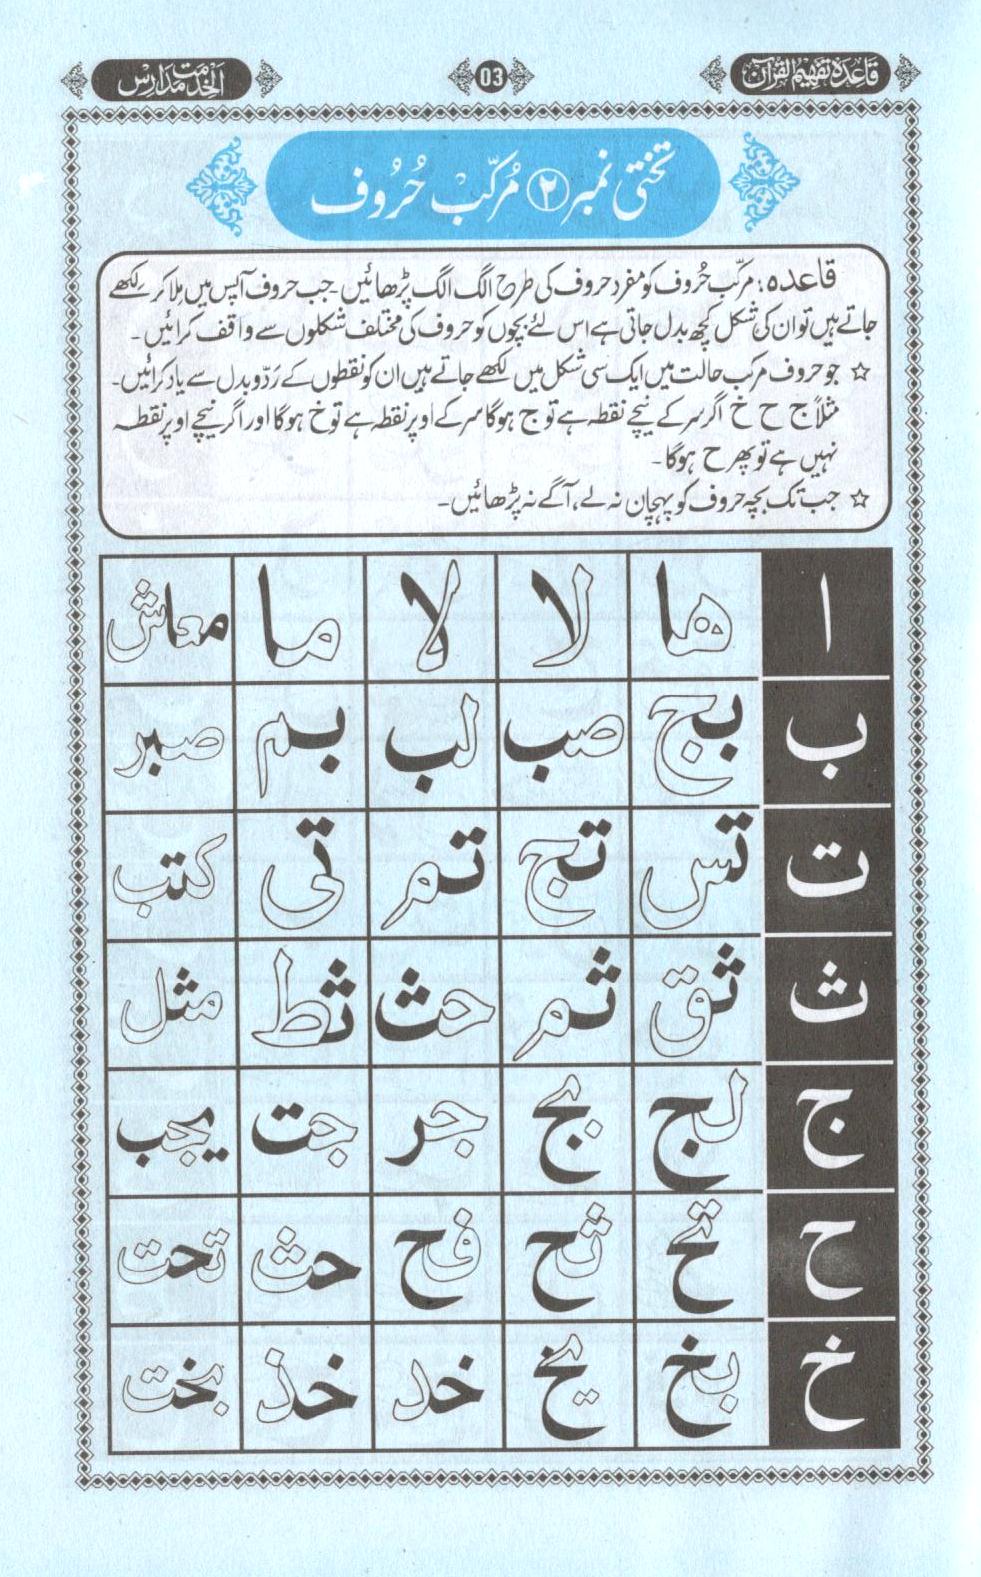 قاعدہ تفہیم القرآن
03
الخدمت مدارس
تختی نمبر ۲ مُرکّبْ حُرُوف
قاعدہ: مرکّب حُروف کو مفرد حروف کی طرح الگ الگ پڑھائیں۔ جب حروف آپس میں مِلا کر لکھے
جاتے ہیں تو ان کی شکل کچھ بدل جاتی ہے اس لئے بچوں کو حروف کی مختلف شکلوں سے واقف کرائیں۔
☆ جو حروف مرکب حالت میں ایک سی شکل میں لکھے جاتے ہیں ان کو نقطوں کے رَدّو بدل سے یاد کرائیں۔
مثلاً ج ح خ اگر سر کے نیچے نقطہ ہے تو ج ہوگا سر کے اوپر نقطہ ہے تو خ ہوگا اور اگر نیچے اوپر نقطہ
نہیں ہے تو پھر ح ہوگا۔
☆ جب تک بچہ حروف کو پہچان نہ لے، آگے نہ پڑھائیں۔
ا ها لا لا ما معاش
ب بج صب لب بم صبر
ت تس تج تم تی کتب
ث ثق ثم حث ثط مثل
ج لج بج جر جت یجب
ح تح ثح فح حث تحت
خ بخ یخ خد خذ بخت